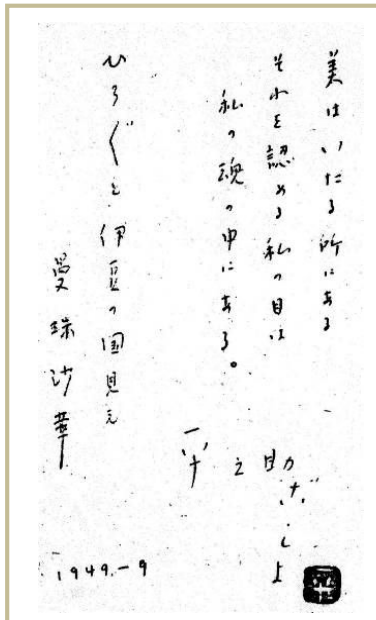 美はいたる所にある
それを認める私の目は
私の魂の中にある。
ひろ〲と伊豆の国見え
曼珠沙華
1949.-9